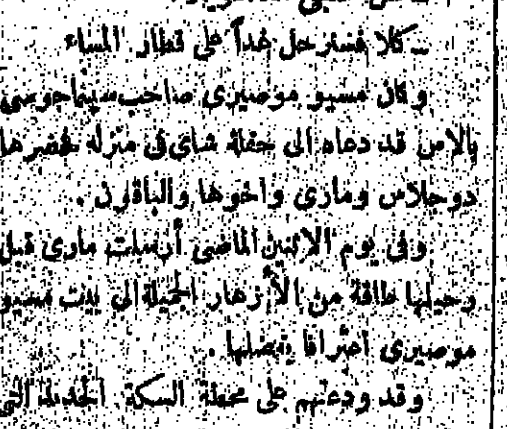 ــ كلا فسنرحل غداً على قطار المساء
وكان مسيو موصيرى صاحب سينما جوسى
بالامس قد دعاه الى حفلة شاى فى منزله فحضرها
دوجلاس ومارى واخوها والباقون .
وفى يوم الاثنين الماضى أرسلت مارى قبل
رحيلها طاقة من الأزهار الجميلة الى بيت مسيو
موصيرى اعترافا بفضلها .
وقد ودعتهم على محطة السكة الحديد التى